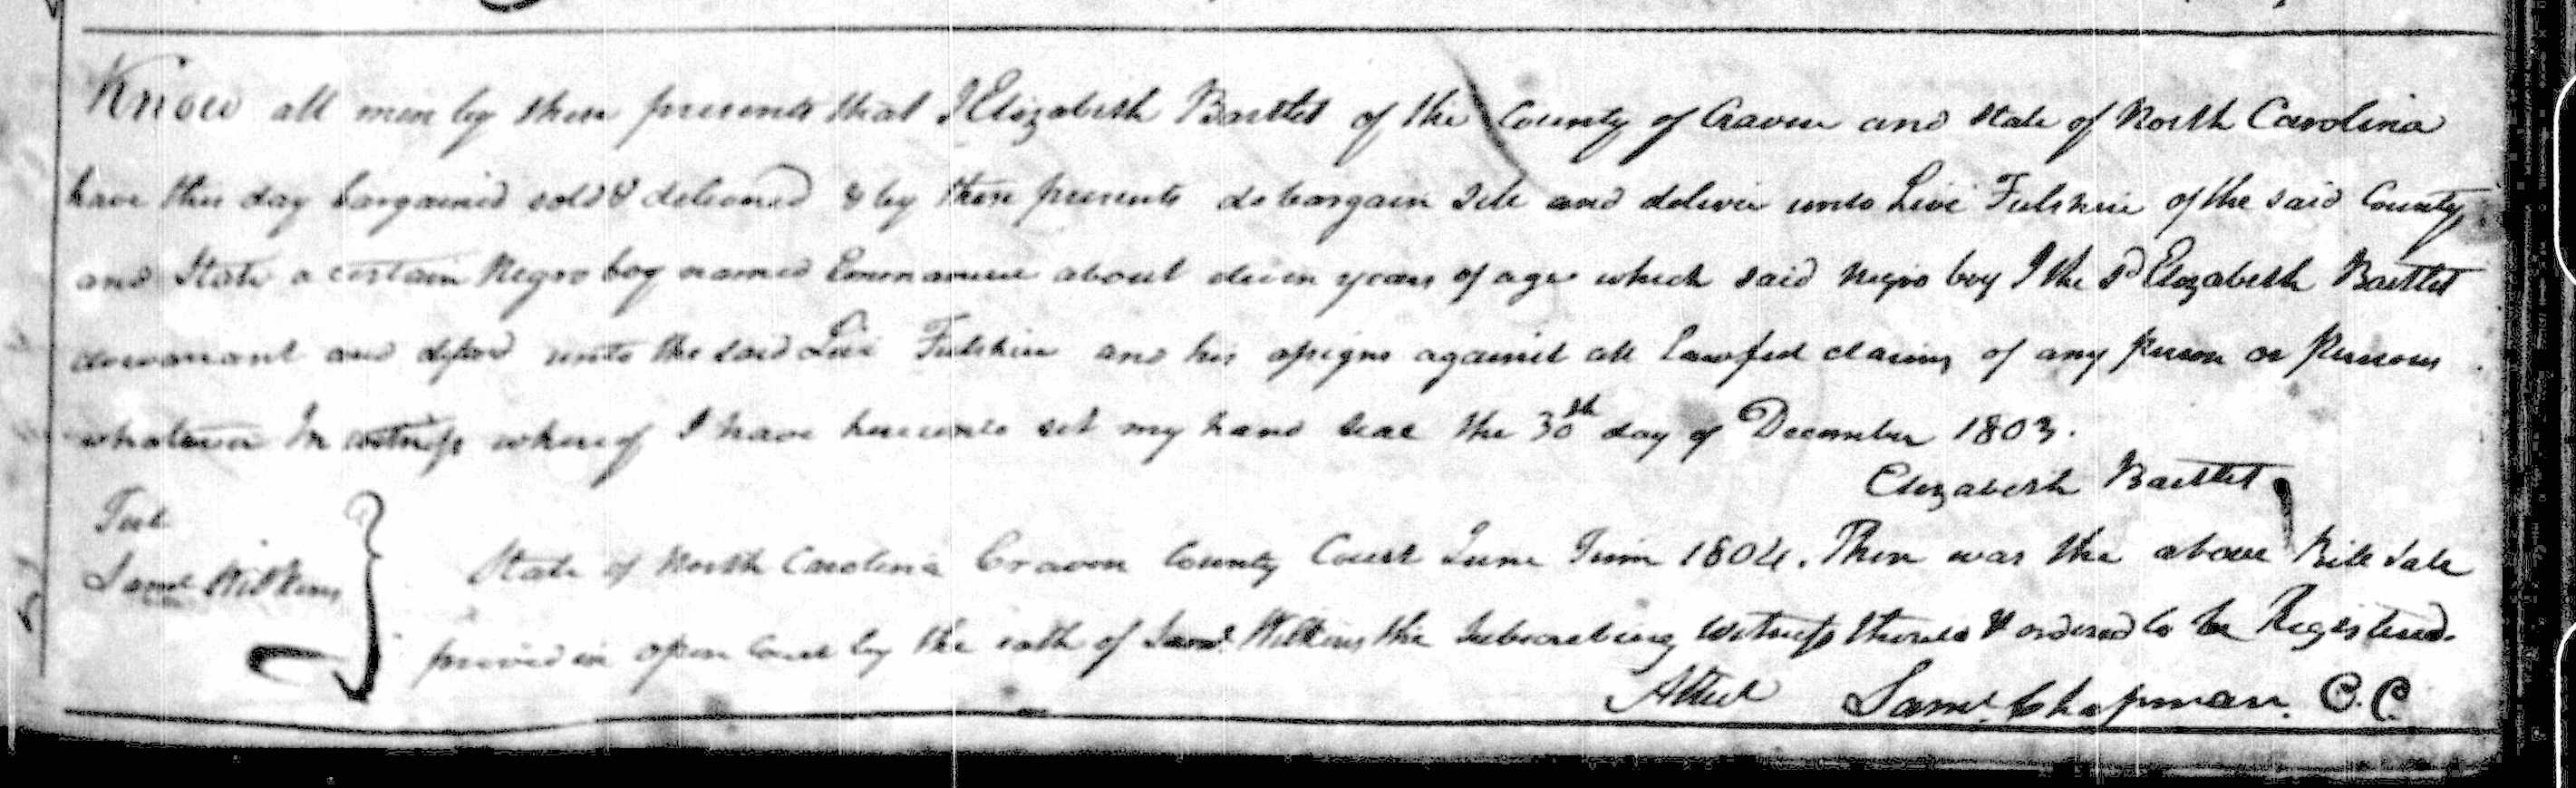 Know all men by these presents that I Elizabeth Bartlet of the County of Craven and State of North Carolina
have this day bargained sold & delivered & by these presents do bargain Sell and deliver unto Levi Fulshire of the said County
and State a certain Negro boy named Emmanuel about eleven years of age which said negro boy I the sd Elizabeth Bartlet
do warrant and defend unto the said Levi Fulshire and his assigns against all lawful claims of any person or persons
whatever In witness whereof I have hereunto set my hand Seal the 30th day of December 1803.
Elizabeth Bartlet
Test
Saml Wilkins
State of North Carolina Craven County Court June Term 1804. Then was the above Bill Sale
proved in open Court by the oath of Saml Wilkins the Subscribing Witness thereto & ordered to be Registered.
Attest Saml Chapman. C.C.